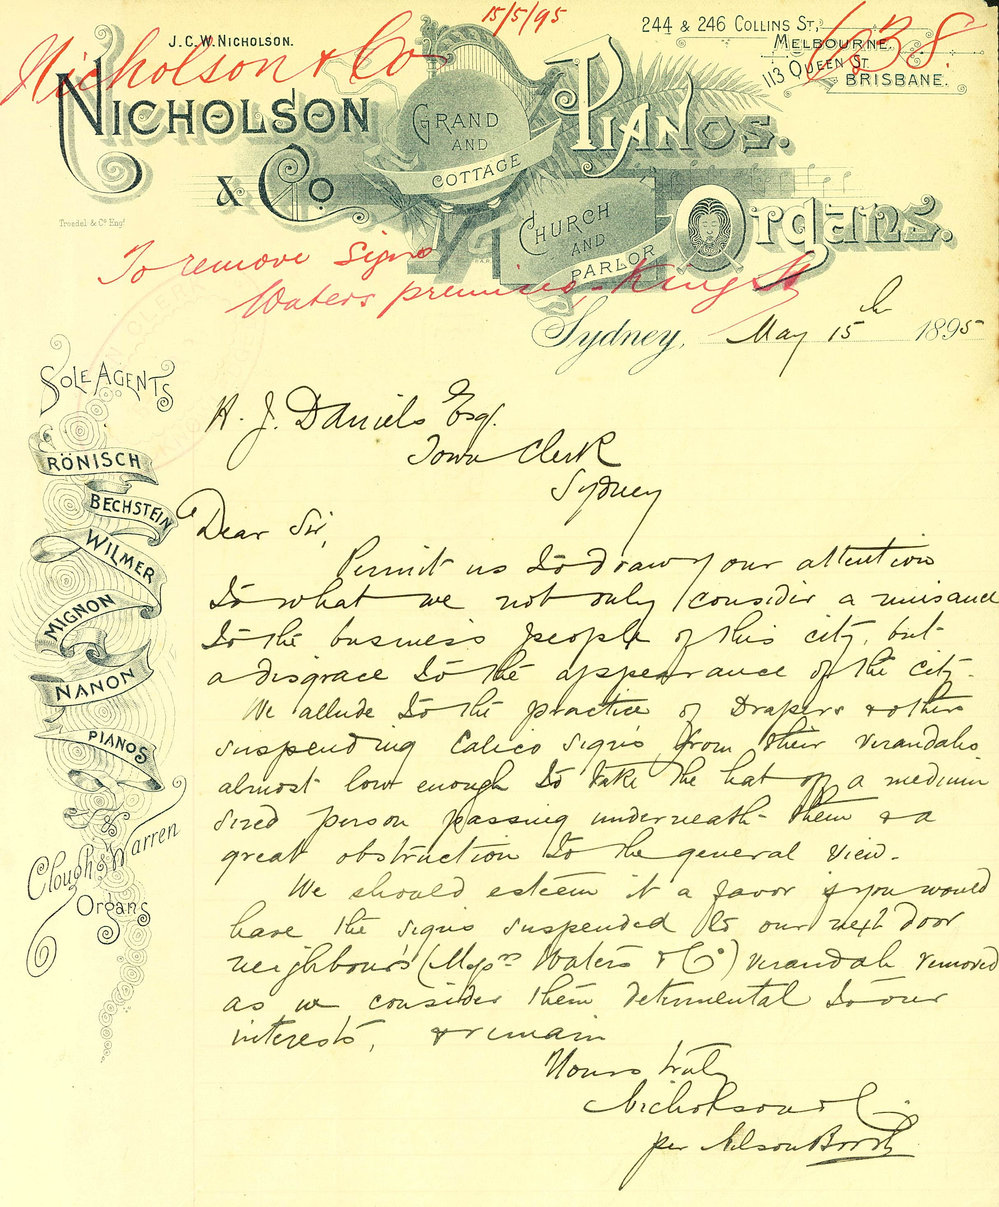 15/5/95
Nicholson & Co
J.C.W. NICHOLSON.
244 & 246 COLLINS ST,
MELBOURNE.
113 QUEEN ST
BRISBANE.
NICHOLSON
& Co
GRAND
AND
COTTAGE
PIANOS.
CHURCH
AND
PARLOR
ORGANS.
Troedel & Co Engr
To remove signs
Waters premises, King St
Sydney, May 15th 1895
SOLE AGENTS
RÖNISCH
BECHSTEIN
WILMER
MIGNON
NANON
PIANOS
&
Clough & Warren
ORGANS
H. J. Daniels Esq.
Town Clerk
Sydney
Dear Sir,
Permit us to draw your attention
to what we not only consider a nuisance
to the business people of this city, but
a disgrace to the appearance of the city.
We allude to the practice of Drapers & others
suspending Calico signs from their verandahs
almost low enough to take the hat off a medium
sized person passing underneath them & a
great obstruction to the general view.
We should esteem it a favor if you would
have the signs suspended to our next door
neighbour's (Messrs Waters & Co) verandah removed
as we consider them detrimental to our
interests, & remain
Yours truly
Nicholson & Co.
per Nelson